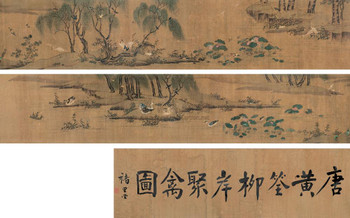 唐黄筌柳岸聚禽圖